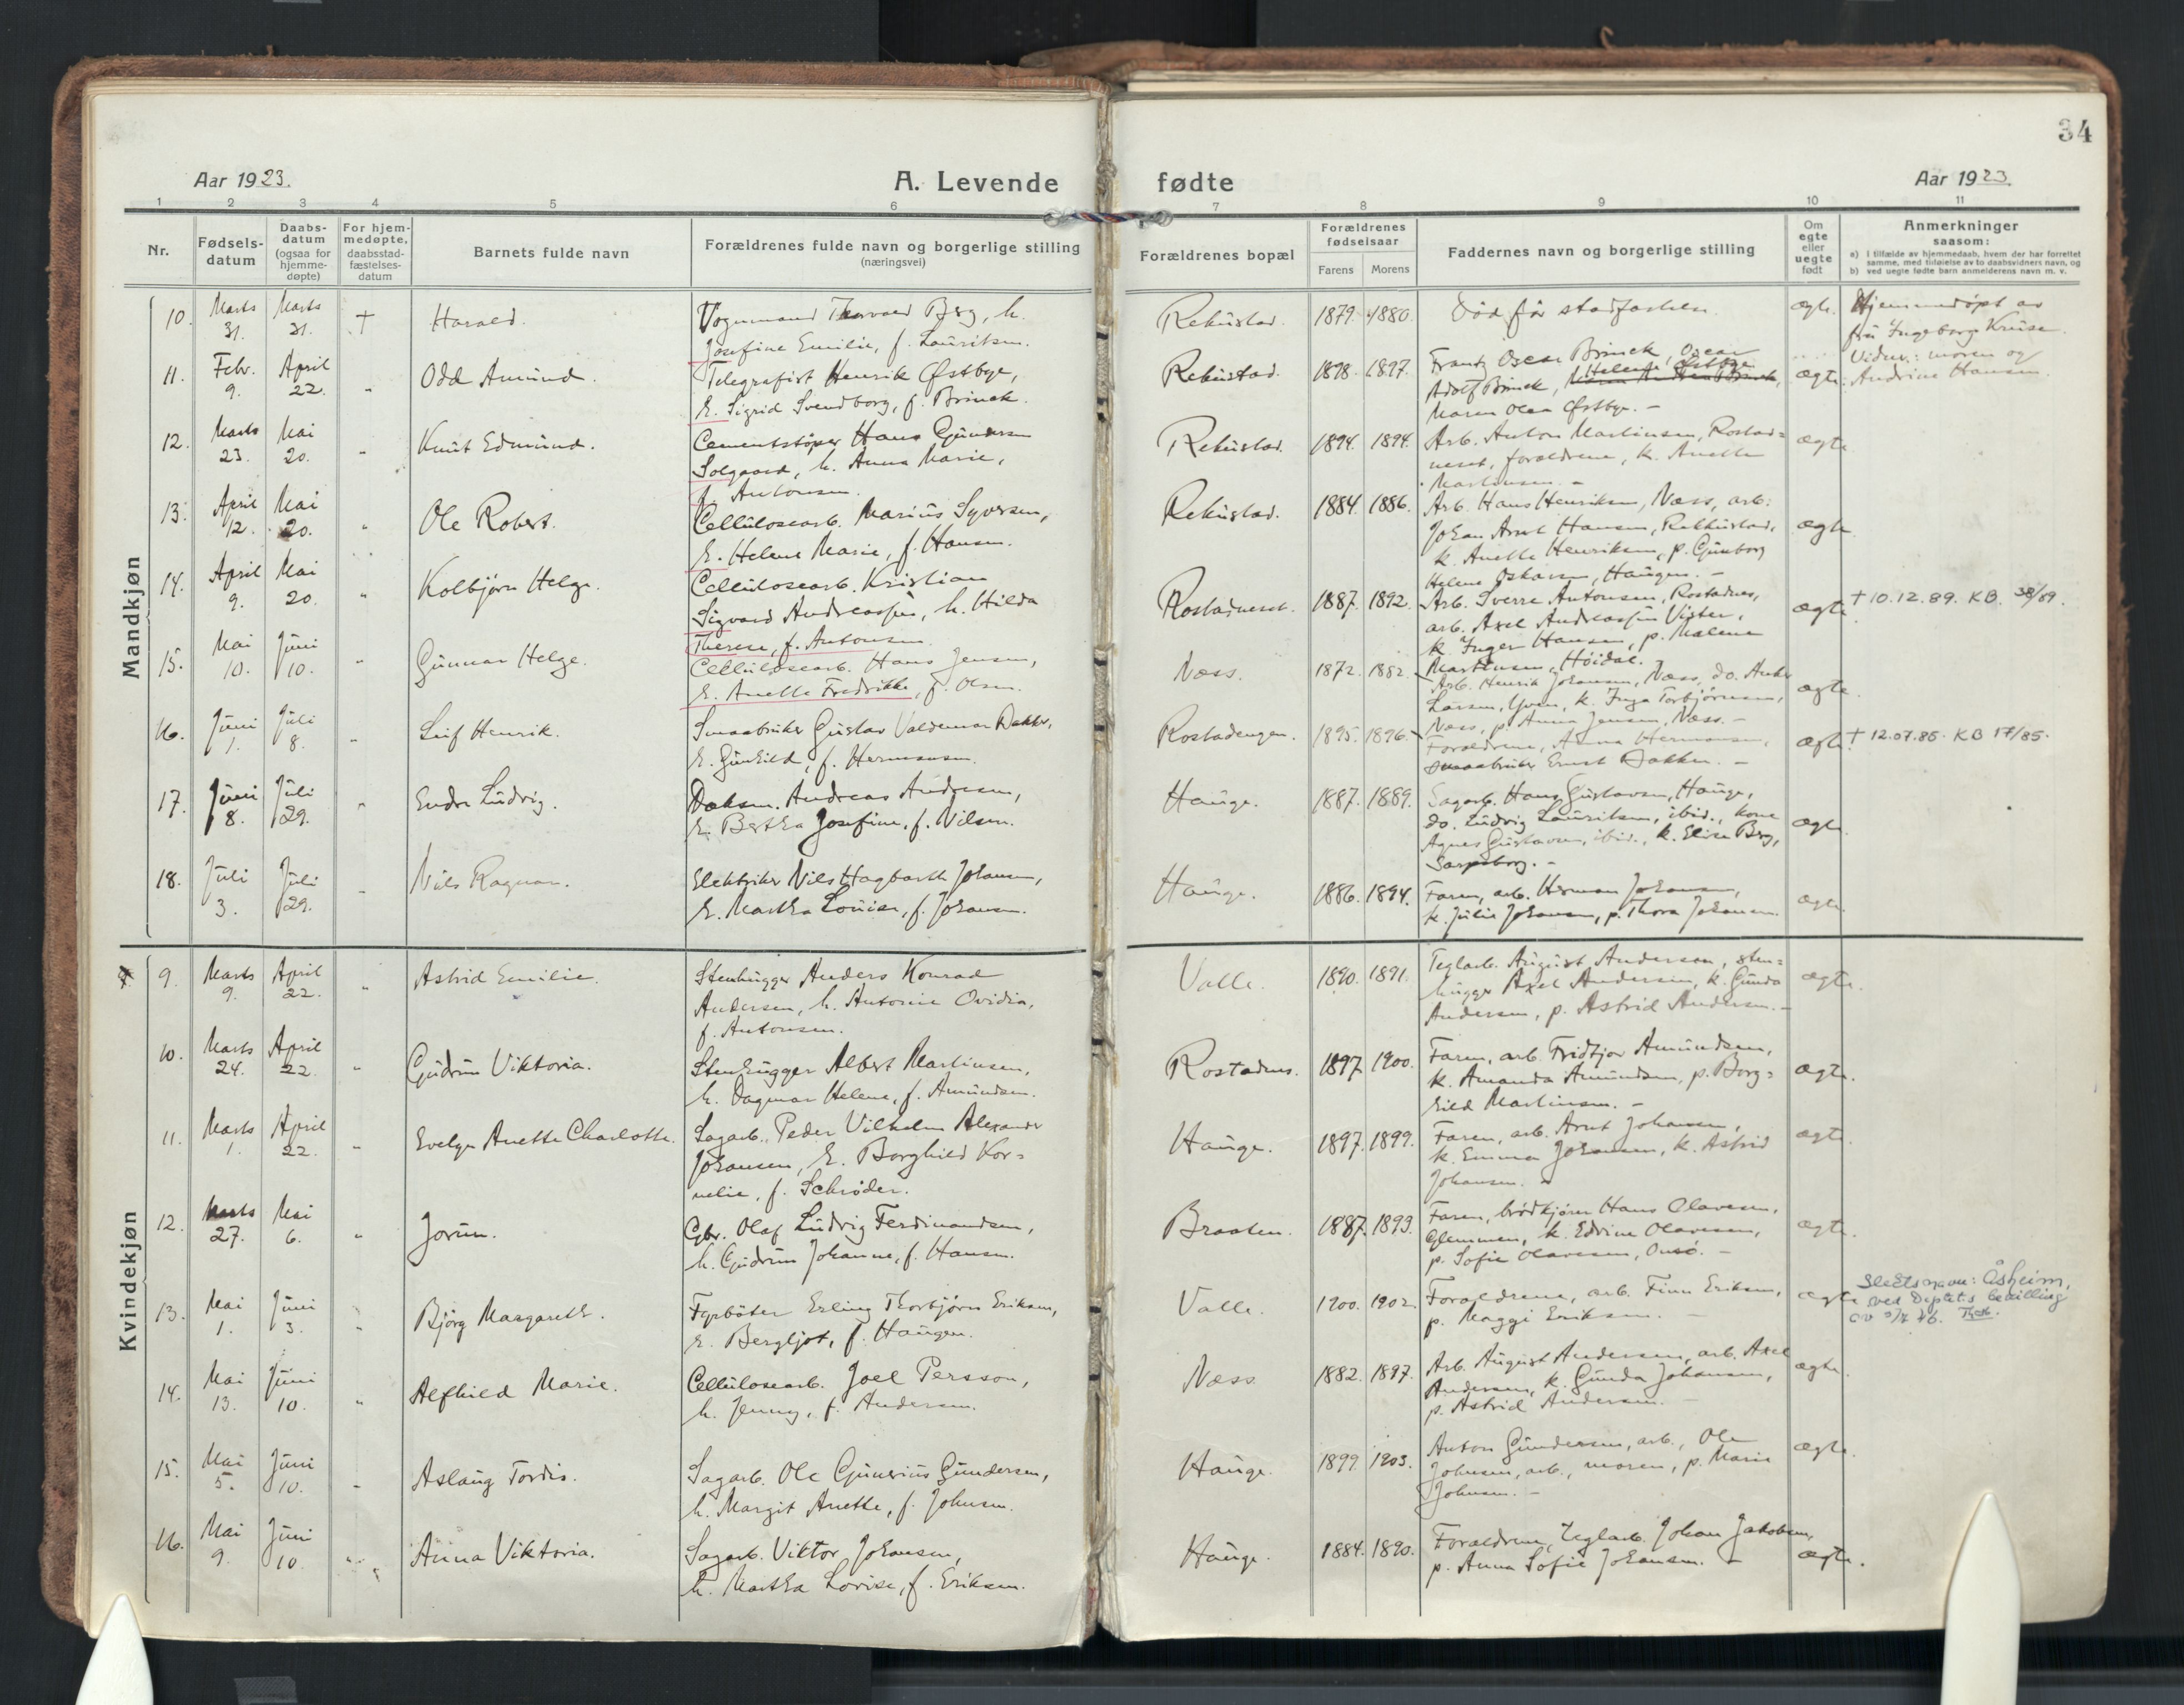 34
Aar 1923.
A. Levende fødte
Aar 1923.
1 2 3 4 5 6 7 8 9 10 11
Nr.
Fødsels-
datum
Daabs-
datum
(ogsaa for
hjemme-
døpte)
For hjem-
medøpte,
daabsstad-
fæstelses-
datum
Barnets fulde navn
Forældrenes fulde navn og borgerlige stilling
(næringsvei)
Forældrenes bopæl
Forældrenes
fødselsaar
Farens Morens
Faddernes navn og borgerlige stilling
Om
egte
eller
uegte
født
Anmerkninger
saasom:
a) I tilfælde av hjemmedaab, hvem der har forrettet
samme, med tilføielse av to daabsvidners navn, og
b) ved uegte fødte barn anmelderens navn m. v.
Mandkjøn
10. Marts 31. Marts 31. † Harald.
Vognmand Thorvald Berg, h.
Josefine Emilie, f. Lauritsen.
Rekustad. 1879. 1880.
Død før stadfæstelsen.
ægte.
Hjemmedøpt av
fru Ingeborg Kruse.
Vidner: moren og
Andrine Hansen.
11. Febr. 9. April 22. " Odd Amund.
Telegrafist Henrik Østbye,
h. Sigrid Svendborg, f. Brinck.
Rekustad. 1898. 1897.
Frantz Oscar Brinck, Oscar
Adolf Brinck, Helene Østbye
Maren Olea Østbye. –
ægte.
12. Marts 23. Mai 20. " Knut Edmund.
Cementstøper Hans Gundersen
Solgaard, h. Anna Marie,
f. Antonsen.
Rekustad. 1894. 1894.
Arb. Anton Martinsen, Rostad=
neset, forældrene, k. Anette
Martinsen. –
ægte
13. April 12. Mai 20. " Ole Robert.
Cellulosearb. Marius Syversen,
h. Helene Marie, f. Hansen.
Rekustad. 1884. 1886.
Arb. Hans Henriksen, Næss, arb.
Johan Arnt Hansen, Rekkustad,
k. Anette Henriksen, p. Gunborg
Helene Oskarsen, Haugen. –
ægte
14. April 9. Mai 20. " Kolbjörn Helge.
Cellulosearb. Kristian
Sigvard Andreassen, h. Hilda
Therese, f. Antonsen.
Rostadneset. 1887. 1892.
Arb. Sverre Antonsen, Rostadnes,
arb. Axel Andreassen Vister,
k. Inger Hansen, p. Malene
Martinsen, Höidal.
ægte
† 10.12.89. KB. 38/89.
15. Mai 10. Juni 10. " Gunnar Helge.
Cellulosearb. Hans Jensen,
h. Anette Fredrikke, f. Olsen.
Næss. 1872. 1882.
Arb. Henrik Johansen, Næss, do. Anker
Larsen, Yven, k. Inga Torbjörnsen,
Næss, p. Anna Jensen, Næss. –
ægte.
16. Juni 1. Juli 8. " Leif Henrik.
Smaabruker Gustav Valdemar Bakke,
h. Gunhild, f. Hermansen.
Rostadengen. 1895. 1896.
Forældrene, Anna Hermansen,
smaabruker Ernst Bakken. –
ægte
† 12.07.85. KB 17/85.
17. Juni 8. Juli 29. " Endre Ludvig.
Doksm. Andreas Andersen,
h. Bertha Josefine, f. Nilsen.
Hauge. 1887. 1889.
Sagarb. Hans Gustavsen, Hauge,
do. Ludvig Lauritsen, ibid., kone
Agnes Gustavsen, ibid., k. Elise Berg,
Sarpsborg. –
ægte.
18. Juli 3. Juli 29. " Nils Ragnar.
Elektriker Nils Hagbarth Johansen,
h. Martha Louise, f. Johansen.
Hauge. 1886. 1894.
Faren, arb. Herman Johansen,
k. Julie Johansen, p. Thora Johansen.
ægte.
Kvindekjøn
9. Marts 9. April 22. " Astrid Emilie.
Stenhugger Anders Konrad
Andersen, h. Antonie Ovidia,
f. Antonsen.
Valle. 1890. 1891.
Teglarb. August Andersen, sten=
hugger Axel Andersen, k. Gunda
Andersen, p. Astrid Andersen. –
ægte.
10. Marts 24. April 22. " Gudrun Viktoria.
Stenhugger Albert Martinsen,
h. Dagmar Helene, f. Amundsen.
Rostadnes. 1897. 1900.
Faren, arb. Fridtjov Amundsen,
k. Amanda Amundsen, p. Borg=
hild Martinsen. –
ægte.
11. Marts 1. April 22. " Evelyn Anette Charlotte.
Sagarb. Peder Vilhelm Alexander
Johansen, h. Borghild Kor=
nelie, f. Schrøder.
Hauge. 1897. 1899.
Faren, arb. Arnt Johansen,
k. Emma Johansen, k. Astrid
Johansen. –
ægte.
12. Marts 27. Mai 6. " Jorun.
Gbr. Olaf Ludvig Ferdinandsen,
h. Gudrun Johanne, f. Hansen.
Braaten. 1887. 1893.
Faren, brødkjører Hans Olavesen,
Glemmen, k. Edvine Olavesen,
p. Sofie Olavesen, Onsö. –
ægte.
13. Mai 1. Juni 3. " Björg Margareth.
Fyrböter Erling Thorbjörn Eriksen,
h. Bergljot, f. Haugen.
Valle. 1900. 1902.
Forældrene, arb. Finn Eriksen,
p. Maggi Eriksen. –
ægte
Slektsnavn: Åsheim,
ved Deptets bevilling
14. Mai 13. Juni 10. " Alfhild Marie.
Cellulosearb. Joel Persson,
h. Jenny, f. Andersen.
Næss. 1882. 1897.
Arb. August Andersen, arb. Axel
Andersen, k. Gunda Johansen,
p. Astrid Andersen. –
ægte.
15. Mai 5. Juni 10. " Aslaug Tordis.
Sagarb. Ole Gunerius Gundersen,
h. Margit Anette, f. Johnsen.
Hauge. 1899. 1903.
Anton Gundersen, arb., Ole
Johnsen, arb., moren, p. Marie
Johnsen. –
ægte.
16. Mai 9. Juni 10. " Anna Viktoria.
Sagarb. Viktor Johansen,
h. Martha Lovise, f. Eriksen.
Hauge. 1884. 1890.
Forældrene, Teglarb. Johan Jakobsen,
p. Anna Sofie Johansen. –
ægte.